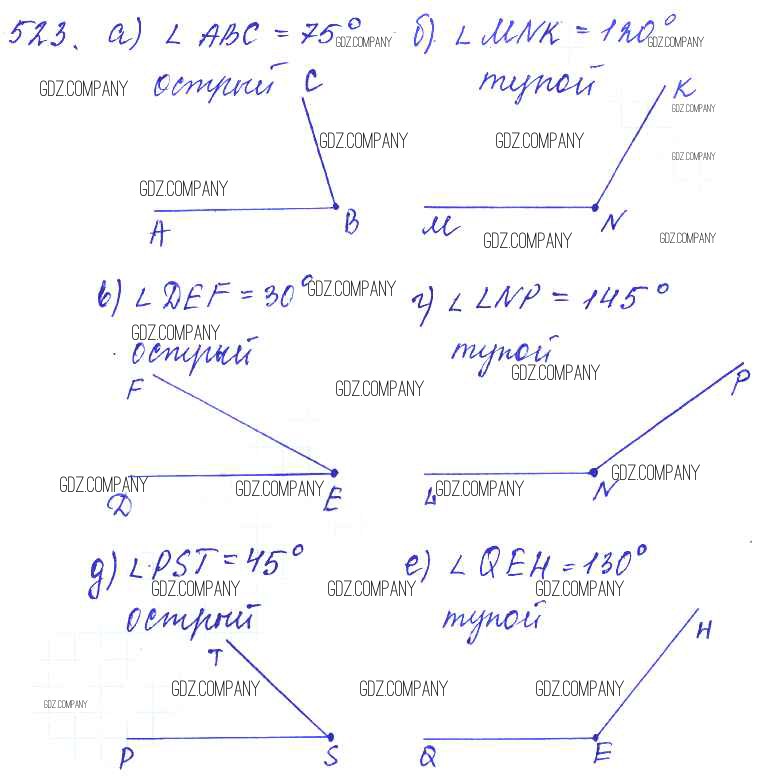 523. а) ∠ ABC = 75° б) ∠ MNK = 120°
GDZ.COMPANY GDZ.COMPANY
острый тупой
GDZ.COMPANY C K
GDZ.COMPANY
GDZ.COMPANY GDZ.COMPANY
GDZ.COMPANY
GDZ.COMPANY
A B M N
GDZ.COMPANY GDZ.COMPANY
в) ∠ DEF = 30° г) ∠ LNP = 145°
GDZ.COMPANY
GDZ.COMPANY
острый тупой
GDZ.COMPANY
F GDZ.COMPANY P
GDZ.COMPANY GDZ.COMPANY GDZ.COMPANY GDZ.COMPANY
D E L N
д) ∠ PST = 45° е) ∠ QEH = 130°
GDZ.COMPANY GDZ.COMPANY GDZ.COMPANY
острый тупой
T H
GDZ.COMPANY GDZ.COMPANY GDZ.COMPANY
GDZ.COMPANY
P S Q E